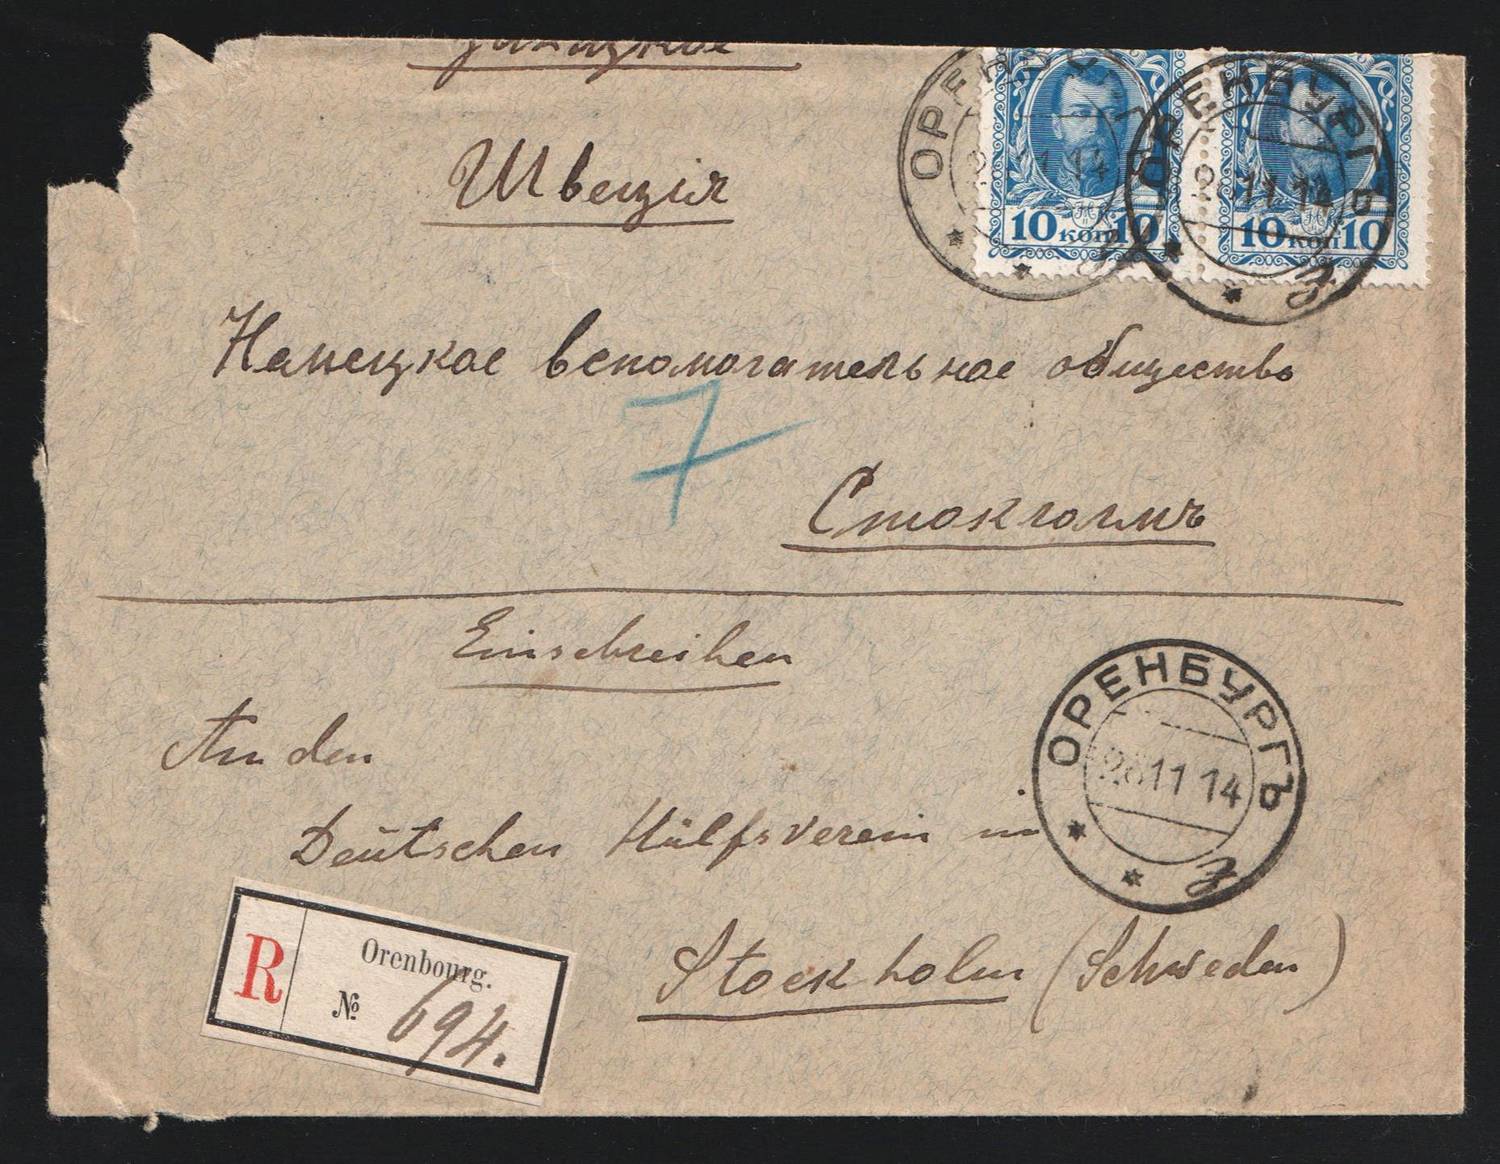 заказное
ОРЕНБУРГЪ
11 14
10 коп 10
ОРЕНБУРГЪ
28 11 14
10 коп 10
Швецiя
Немецкое вспомогательное общество
7
Стокгольмъ
Einschreiben
An den
Deutschen Hülfsverein in
Stockholm (Schweden)
ОРЕНБУРГЪ
28 11 14
R
Orenbourg.
№ 694.